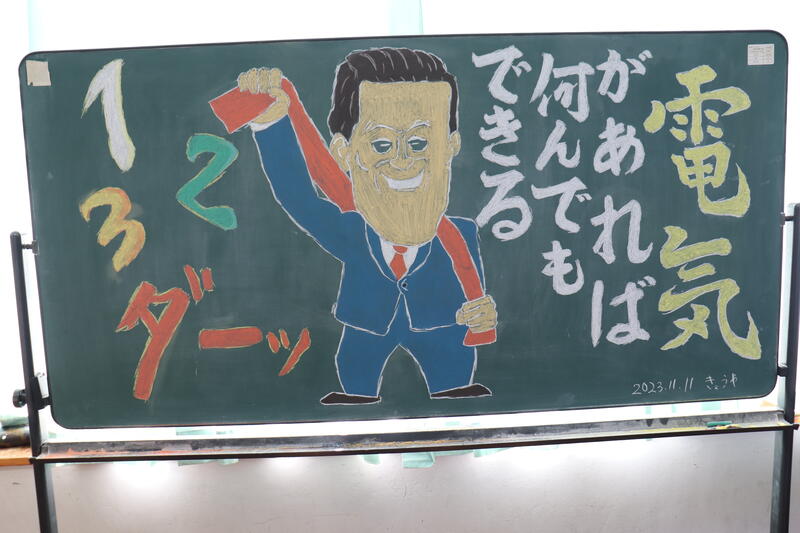 電気
があれば
何んでも
できる
1
2
3
ダーッ
2023.11.11 きょうや